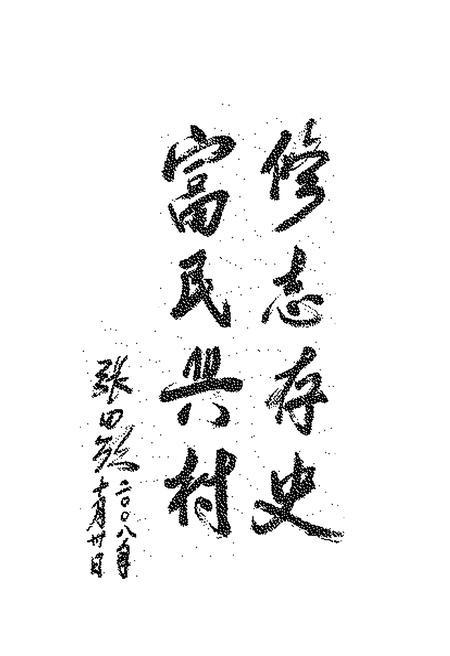 修志存史
富民興村
张田欣
二〇〇八年
十月卅日